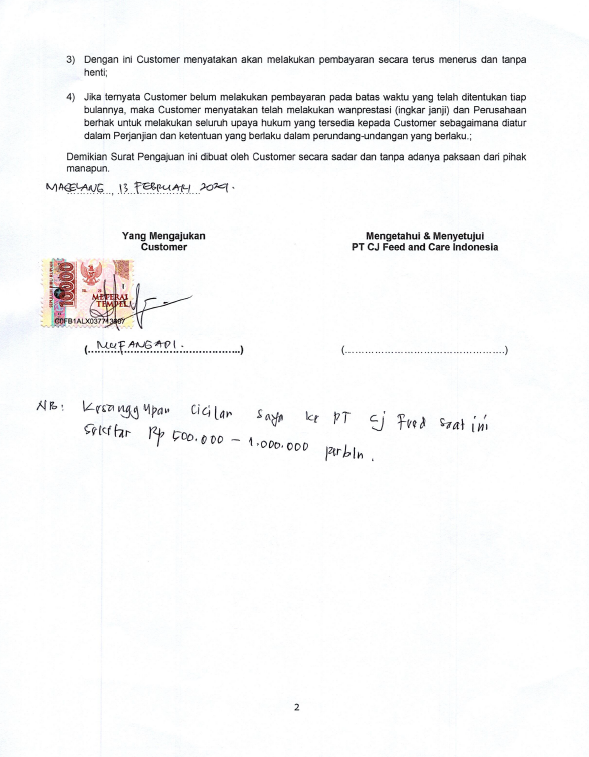 3) Dengan ini Customer menyatakan akan melakukan pembayaran secara terus menerus dan tanpa
henti;
4) Jika ternyata Customer belum melakukan pembayaran pada batas waktu yang telah ditentukan tiap
bulannya, maka Customer menyatakan telah melakukan wanprestasi (ingkar janji) dan Perusahaan
berhak untuk melakukan seluruh upaya hukum yang tersedia kepada Customer sebagaimana diatur
dalam Perjanjian dan ketentuan yang berlaku dalam perundang-undangan yang berlaku.;
Demikian Surat Pengajuan ini dibuat oleh Customer secara sadar dan tanpa adanya paksaan dari pihak
manapun.
MAGELANG, 13 FEBRUARI
Yang Mengajukan
Customer
Mengetahui & Menyetujui
PT CJ Feed and Care Indonesia
10000
METERAI
TEMPEL
(MUFANGADI.)
(..................................................)
NB: Kesanggupan Cicilan saya ke PT Cj Feed saat ini
Sekitar Rp 500.000 – 1.000.000 perbln.
2